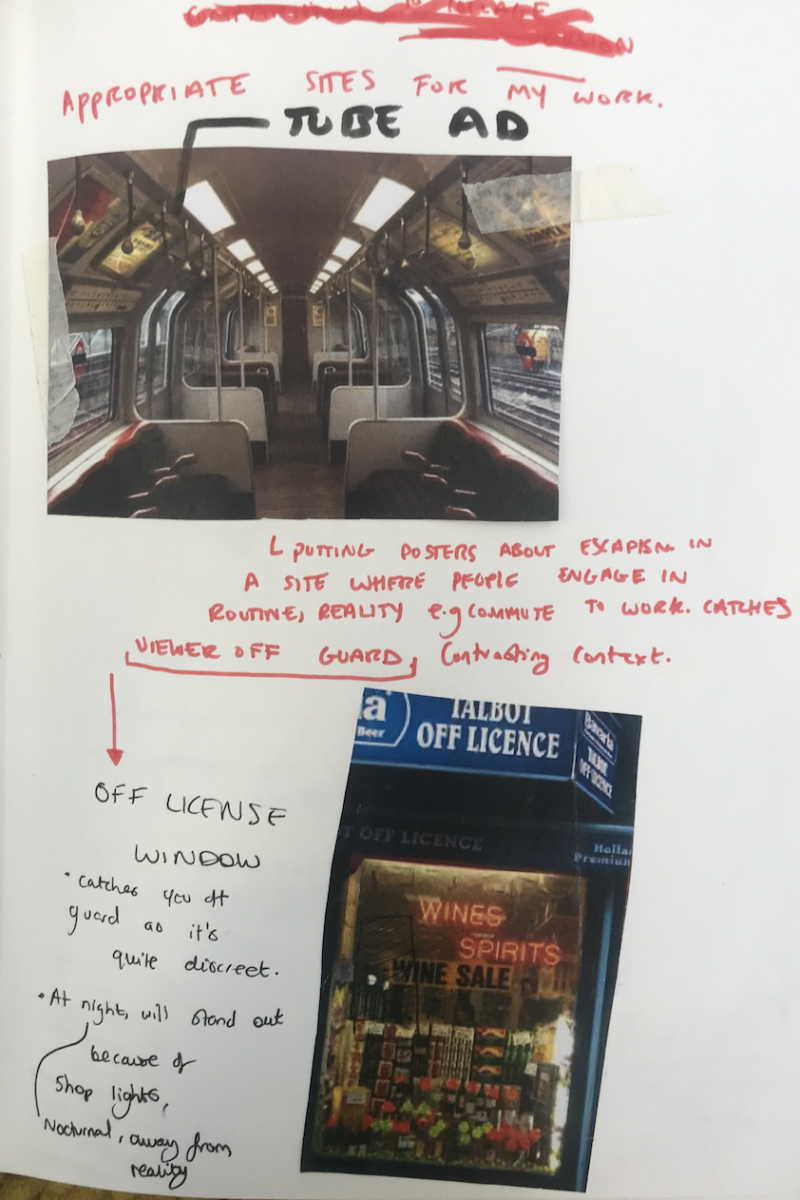 APPROPRIATE SITES FOR MY WORK.
TUBE AD
L PUTTING POSTERS ABOUT ESCAPISM IN
A SITE WHERE PEOPLE ENGAGE IN
ROUTINE, REALITY e.g COMMUTE TO WORK. CATCHES
VIEWER OFF GUARD, Contrasting Context.
OFF LICENSE
WINDOW
• Catches you off
guard as it's
quite discreet.
• At night, will stand out
because of
Shop lights,
Nocturnal, away from
reality
a
Beer
TALBOT
OFF LICENCE
Bavaria
TALBOT
OFF LICENCE
T OFF LICENCE
Holla
Premium
WINES
SPIRITS
WINE SALE